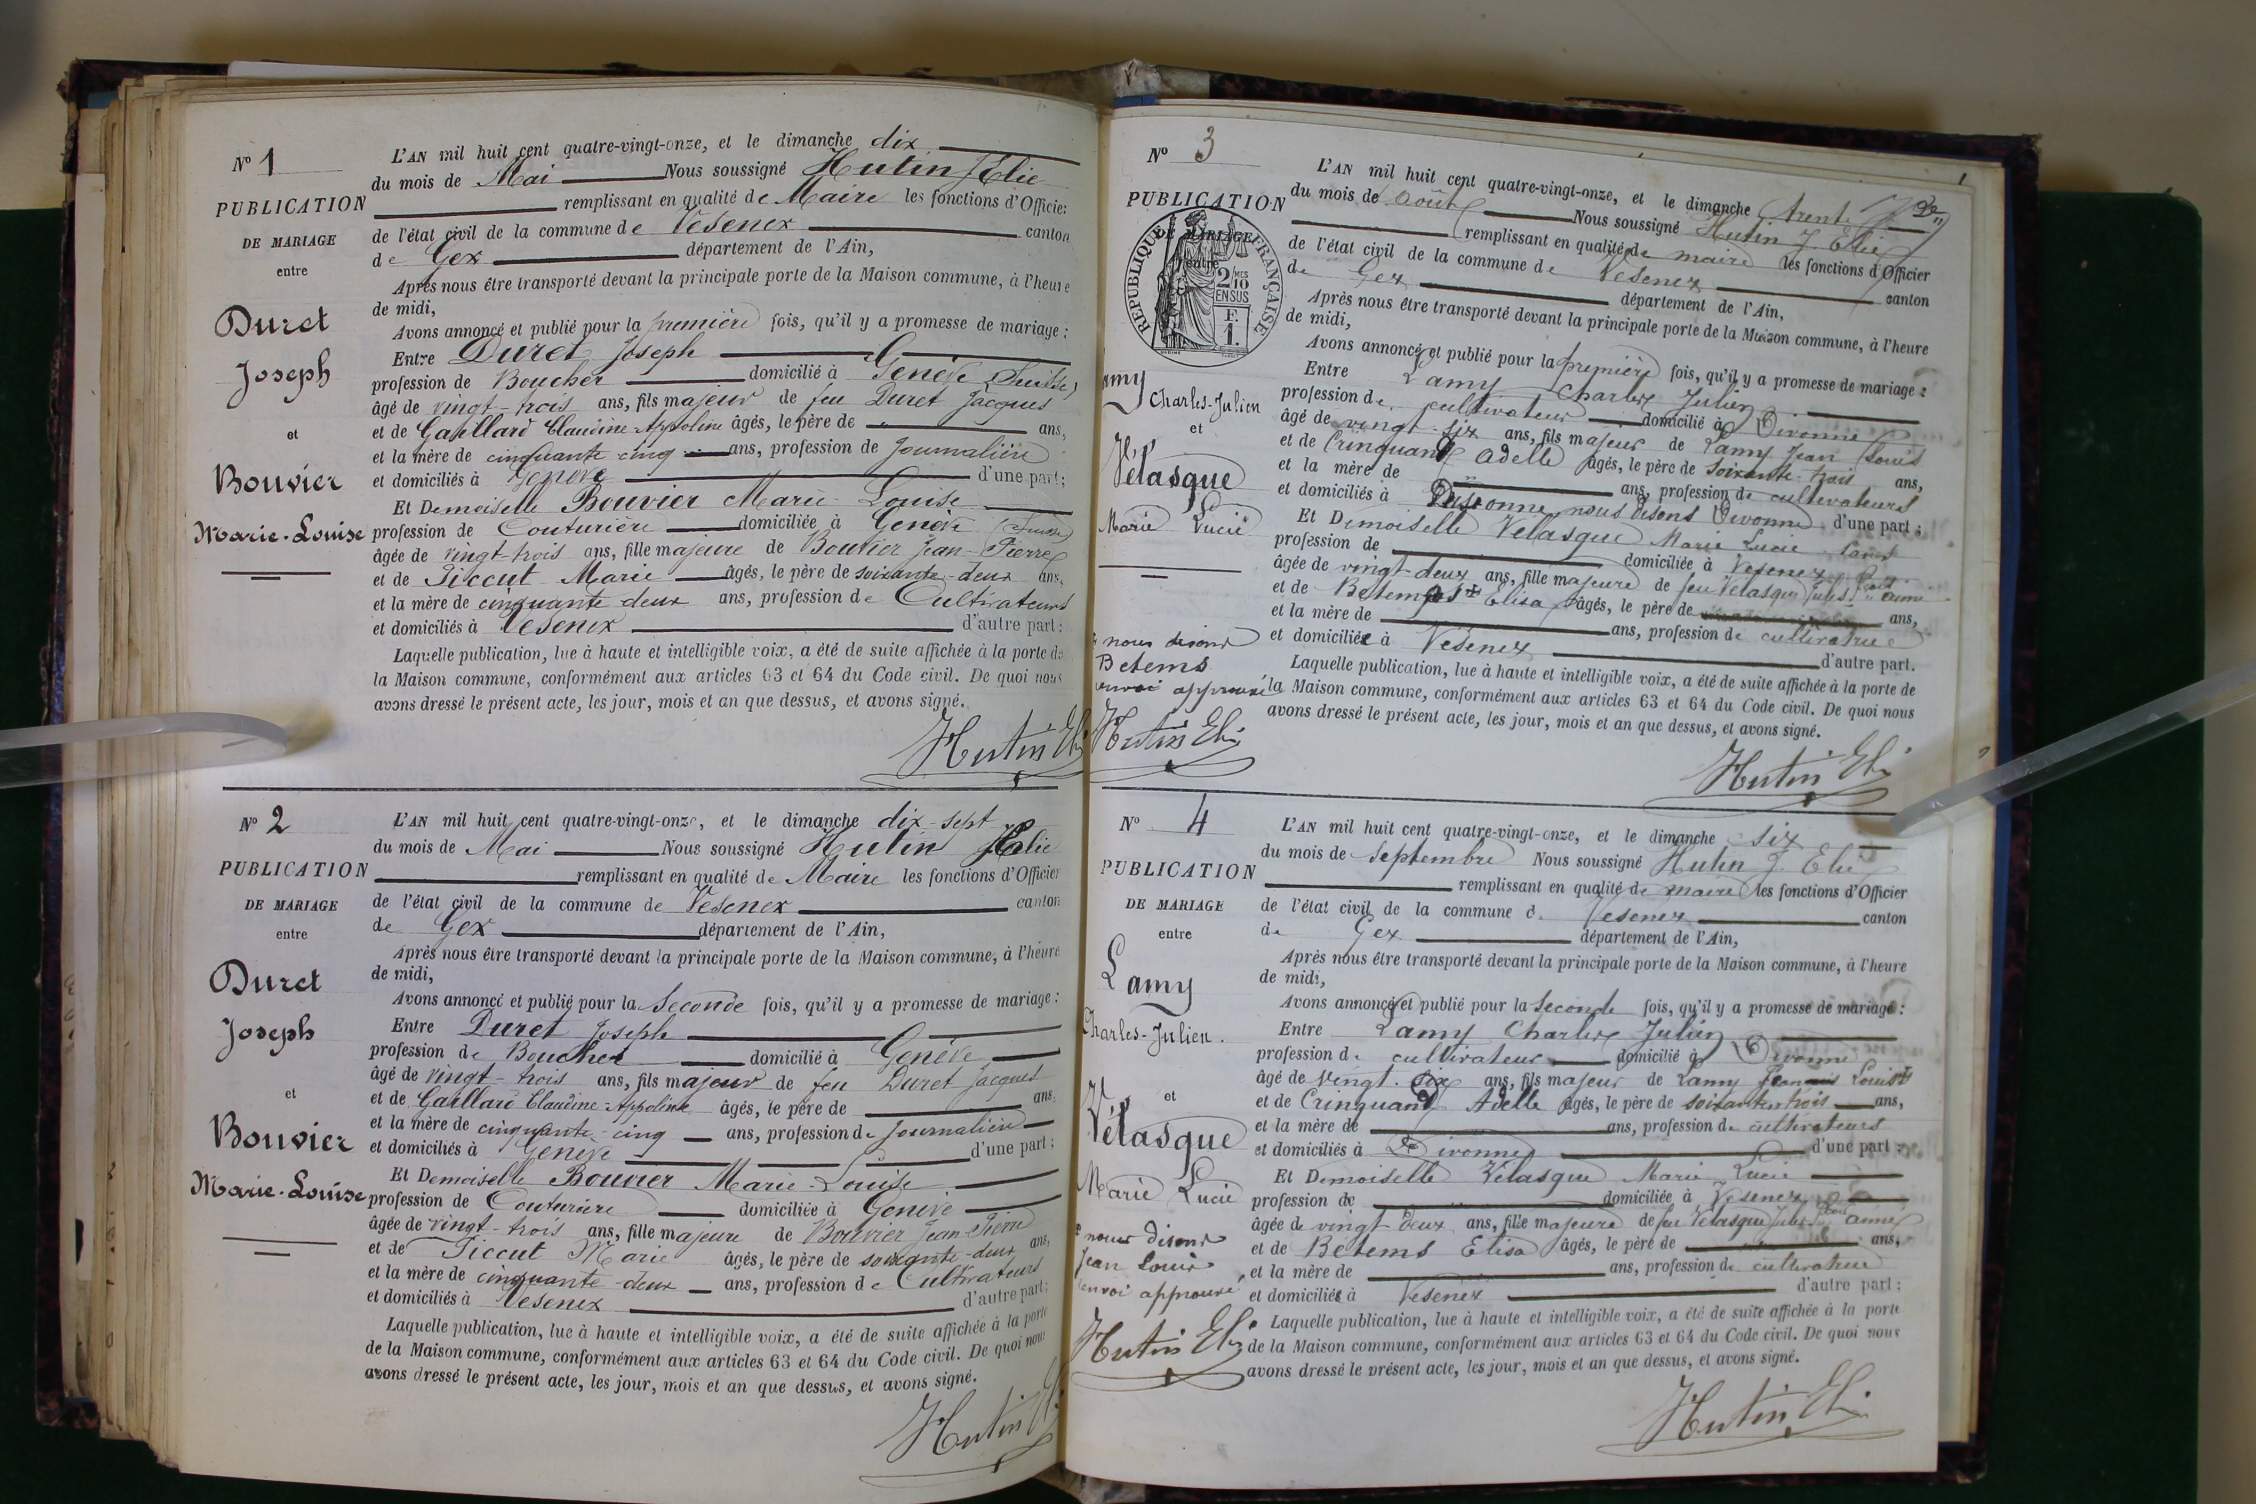 N° 1
PUBLICATION
DE MARIAGE
entre
Duret
Joseph
et
Bouvier
Marie-Louise
L'AN mil huit cent quatre-vingt-onze, et le dimanche dix
du mois de Mai Nous soussigné Hutin J. Elie
remplissant en qualité de Maire les fonctions d'Officier
de l'état civil de la commune de Vesenex canton
de Gex département de l'Ain,
Après nous être transporté devant la principale porte de la Maison commune, à l'heure
de midi,
Avons annoncé et publié pour la première fois, qu'il y a promesse de mariage :
Entre Duret Joseph
profession de Boucher domicilié à Genève (Suisse)
âgé de vingt-trois ans, fils majeur de feu Duret Jacques
et de Gaillard Claudine-Appoline âgés, le père de ans,
et la mère de cinquante-cinq ans, profession de Journalière
et domiciliés à Genève d'une part;
Et Demoiselle Bouvier Marie-Louise
profession de Couturière domiciliée à Genève (Suisse)
âgée de vingt-trois ans, fille majeure de Bouvier Jean-Pierre
et de Piccut Marie âgés, le père de soixante-deux ans,
et la mère de cinquante-deux ans, profession de Cultivateurs
et domiciliés à Vesenex d'autre part;
Laquelle publication, lue à haute et intelligible voix, a été de suite affichée à la porte de
la Maison commune, conformément aux articles 63 et 64 du Code civil. De quoi nous
avons dressé le présent acte, les jour, mois et an que dessus, et avons signé.
Hutin Eli
N° 2
PUBLICATION
DE MARIAGE
entre
Duret
Joseph
et
Bouvier
Marie-Louise
L'AN mil huit cent quatre-vingt-onze, et le dimanche dix-sept
du mois de Mai Nous soussigné Hutin J. Elie
remplissant en qualité de Maire les fonctions d'Officier
de l'état civil de la commune de Vesenex canton
de Gex département de l'Ain,
Après nous être transporté devant la principale porte de la Maison commune, à l'heure
de midi,
Avons annoncé et publié pour la Seconde fois, qu'il y a promesse de mariage :
Entre Duret Joseph
profession de Boucher domicilié à Genève
âgé de vingt-trois ans, fils majeur de feu Duret Jacques
et de Gaillard Claudine-Appoline âgés, le père de ans,
et la mère de cinquante-cinq ans, profession de Journalière
et domiciliés à Genève d'une part;
Et Demoiselle Bouvier Marie-Louise
profession de Couturière domiciliée à Genève
âgée de vingt-trois ans, fille majeure de Bouvier Jean-Pierre
et de Piccut Marie âgés, le père de soixante-deux ans,
et la mère de cinquante-deux ans, profession de Cultivateurs
et domiciliés à Vesenex d'autre part;
Laquelle publication, lue à haute et intelligible voix, a été de suite affichée à la porte
de la Maison commune, conformément aux articles 63 et 64 du Code civil. De quoi nous
avons dressé le présent acte, les jour, mois et an que dessus, et avons signé.
Hutin
N° 3
PUBLICATION
DE MARIAGE
entre
REPUBLIQUE FRANÇAISE
2/10 MES
EN SUS
F.
1.
Lamy
Charles-Julien
et
Vélasque
Marie Lucie
nous disons
Betems
renvoi approuvé
Hutin Eli
L'AN mil huit cent quatre-vingt-onze, et le dimanche trente
du mois de août Nous soussigné Hutin J. Elie
remplissant en qualité de maire les fonctions d'Officier
de l'état civil de la commune de Vesenex canton
de Gex département de l'Ain,
Après nous être transporté devant la principale porte de la Maison commune, à l'heure
de midi,
Avons annoncé et publié pour la première fois, qu'il y a promesse de mariage :
Entre Lamy Charles Julien
profession de cultivateur domicilié à Divonne
âgé de vingt-six ans, fils majeur de Lamy Jean Louis
et de Crinquand Adelle âgés, le père de soixante-trois ans,
et la mère de ans, profession de cultivateurs
et domiciliés à nous disons Divonne d'une part;
Et Demoiselle Velasque Marie Lucie
profession de domiciliée à Vesenex
âgée de vingt-deux ans, fille majeure de feu Velasque Jules
et de Elisa âgés, le père de ans,
et la mère de ans, profession de cultivatrice
et domiciliée à Vésenex d'autre part.
Laquelle publication, lue à haute et intelligible voix, a été de suite affichée à la porte de
la Maison commune, conformément aux articles 63 et 64 du Code civil. De quoi nous
avons dressé le présent acte, les jour, mois et an que dessus, et avons signé.
Hutin Eli
N° 4
PUBLICATION
DE MARIAGE
entre
Lamy
Charles-Julien.
et
Vélasque
Marie Lucie
nous disons
Jean Louis
renvoi approuvé
Hutin Eli
L'AN mil huit cent quatre-vingt-onze, et le dimanche six
du mois de septembre Nous soussigné Hutin J. Elie
remplissant en qualité de maire les fonctions d'Officier
de l'état civil de la commune de Vesenex canton
de Gex département de l'Ain,
Après nous être transporté devant la principale porte de la Maison commune, à l'heure
de midi,
Avons annoncé et publié pour la Seconde fois, qu'il y a promesse de mariage :
Entre Lamy Charles Julien
profession de cultivateur domicilié à Divonne
âgé de vingt-six ans, fils majeur de Lamy Louis
et de Crinquand Adelle âgés, le père de soixante-trois ans,
et la mère de ans, profession de cultivateurs
et domiciliés à Divonne d'une part;
Et Demoiselle Velasque Marie Lucie
profession de domiciliée à Vesenex
âgée de vingt-deux ans, fille majeure de feu Velasque Jules
et de Betems Elisa âgés, le père de ans,
et la mère de ans, profession de cultivatrice
et domiciliée à Vesenex d'autre part;
Laquelle publication, lue à haute et intelligible voix, a été de suite affichée à la porte
de la Maison commune, conformément aux articles 63 et 64 du Code civil. De quoi nous
avons dressé le présent acte, les jour, mois et an que dessus, et avons signé.
Hutin Eli